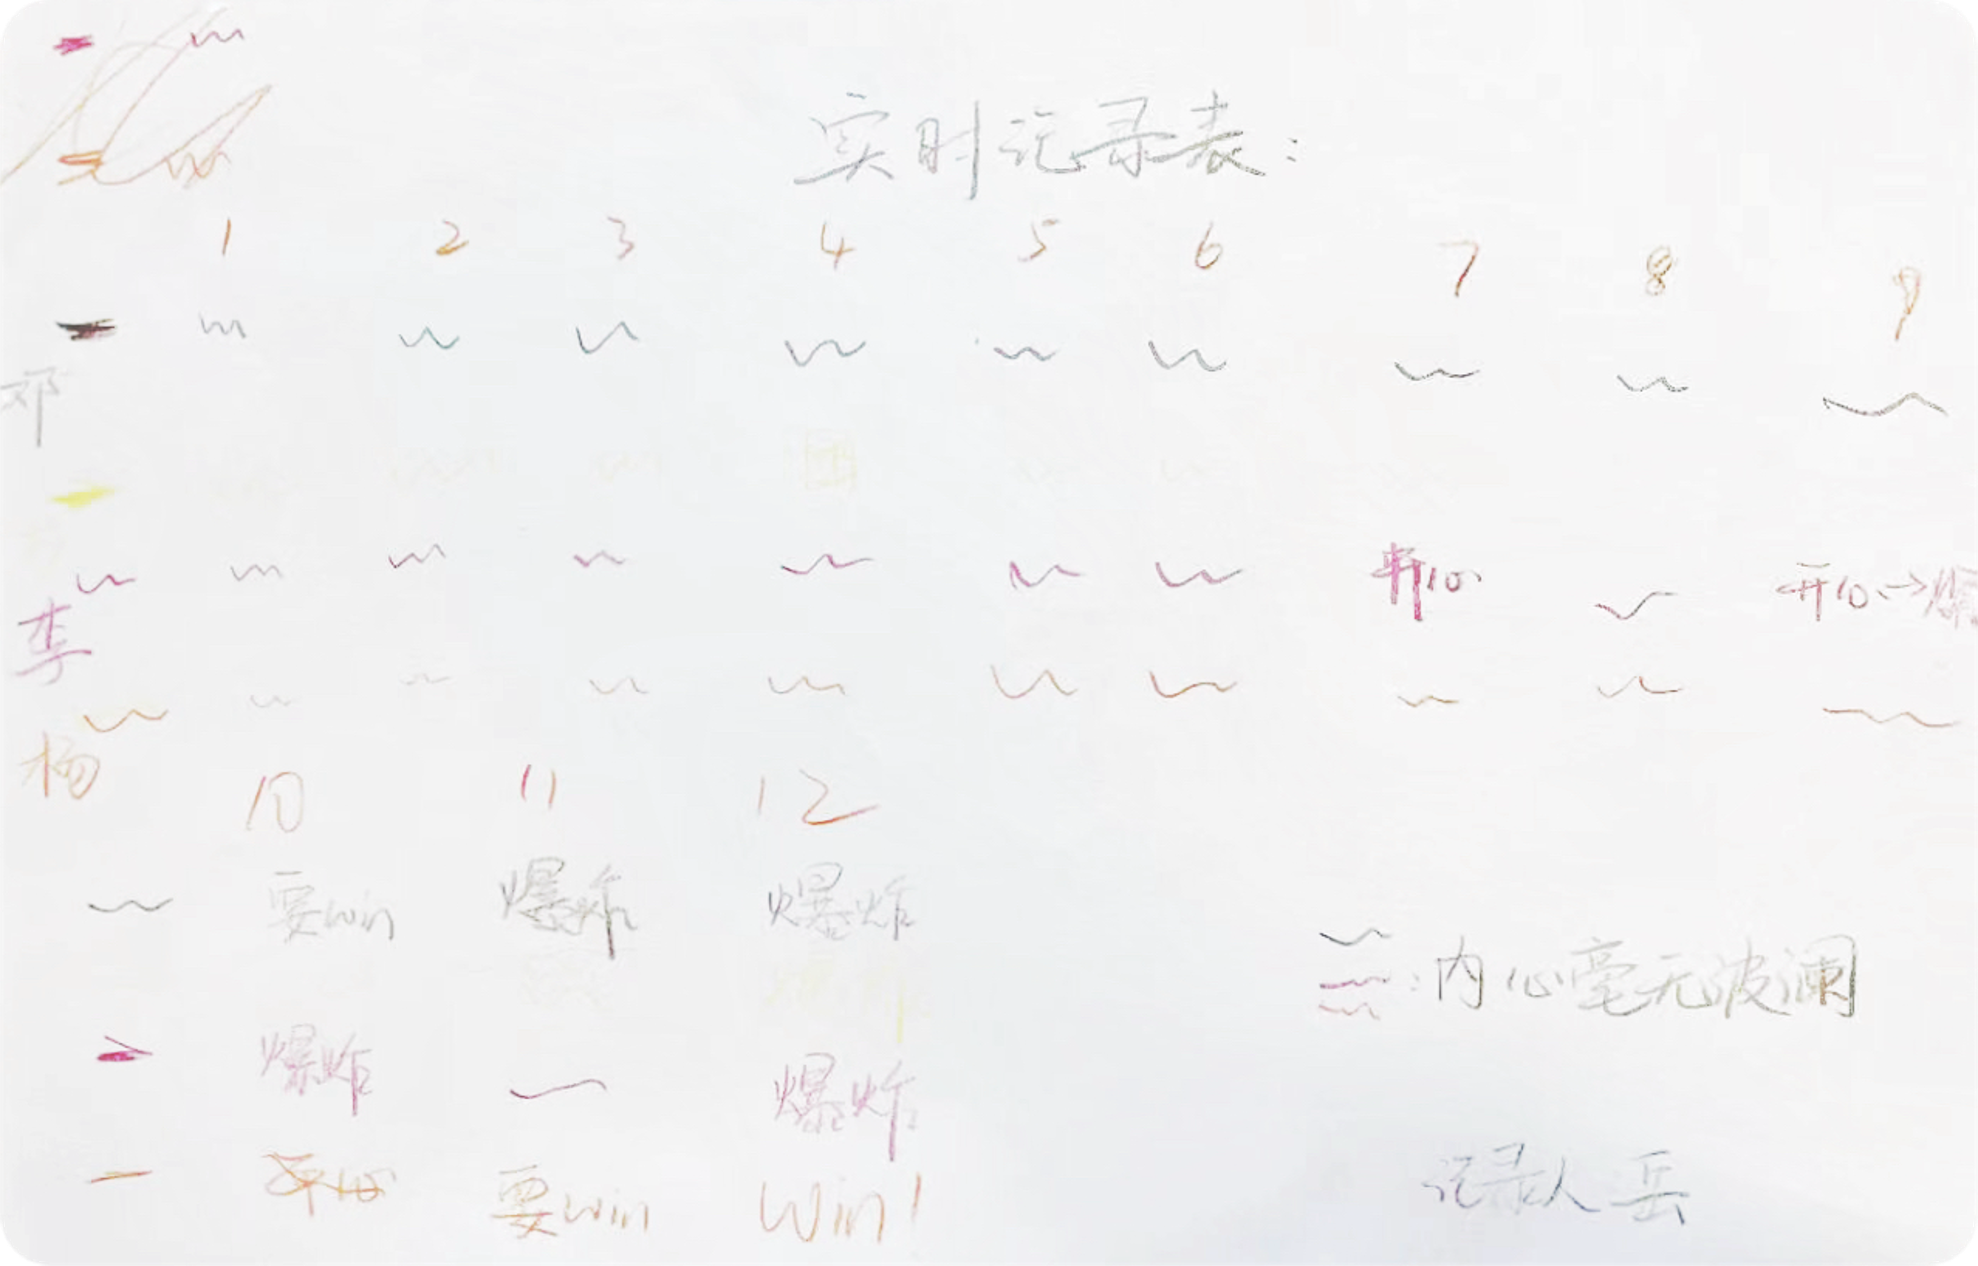 实时记录表:
1 2 3 4 5 6 7 8 9
邓
开心 开心→爆
李
杨
10 11 12
要win 爆炸 爆炸
:内心毫无波澜
爆炸
爆炸 爆炸
开心 要win Win!
记录人 岳